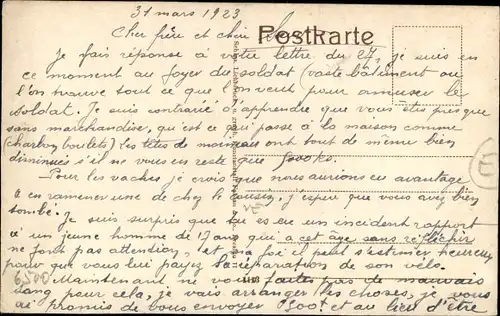 31 mars 1923
Postkarte
Cher frère et chère
Je fais réponse à votre lettre du 27, je suis en
ce moment au foyer du soldat (vaste bâtiment ou
l'on trouve tout ce que l'on veut pour amuser le
soldat. Je suis contrarié d'apprendre que vous êtes presque
sans marchandise, qu'est ce qui passe à la maison comme
(charbon boulets) les têtes de moineau ont tout de même bien
diminués s'il ne vous en reste que 500 ks.
Pour les vaches je crois que nous aurions eu avantage
à en ramener une de chez le j'espère que vous avez bien
tombé. Je suis surpris que tu es eu un incident rapport
à un jeune homme de 17 ans qui a cet âge sans réfléchir
ne font pas attention, et ma foi il peut s'estimer heureux
pour que vous lui payez la réparation de son vélo.
6500 Maintenant ne vous faites pas de mauvais
sang pour cela, je vais arranger les choses, je vous
ai promis de vous envoyer 300t et au lieu d'être